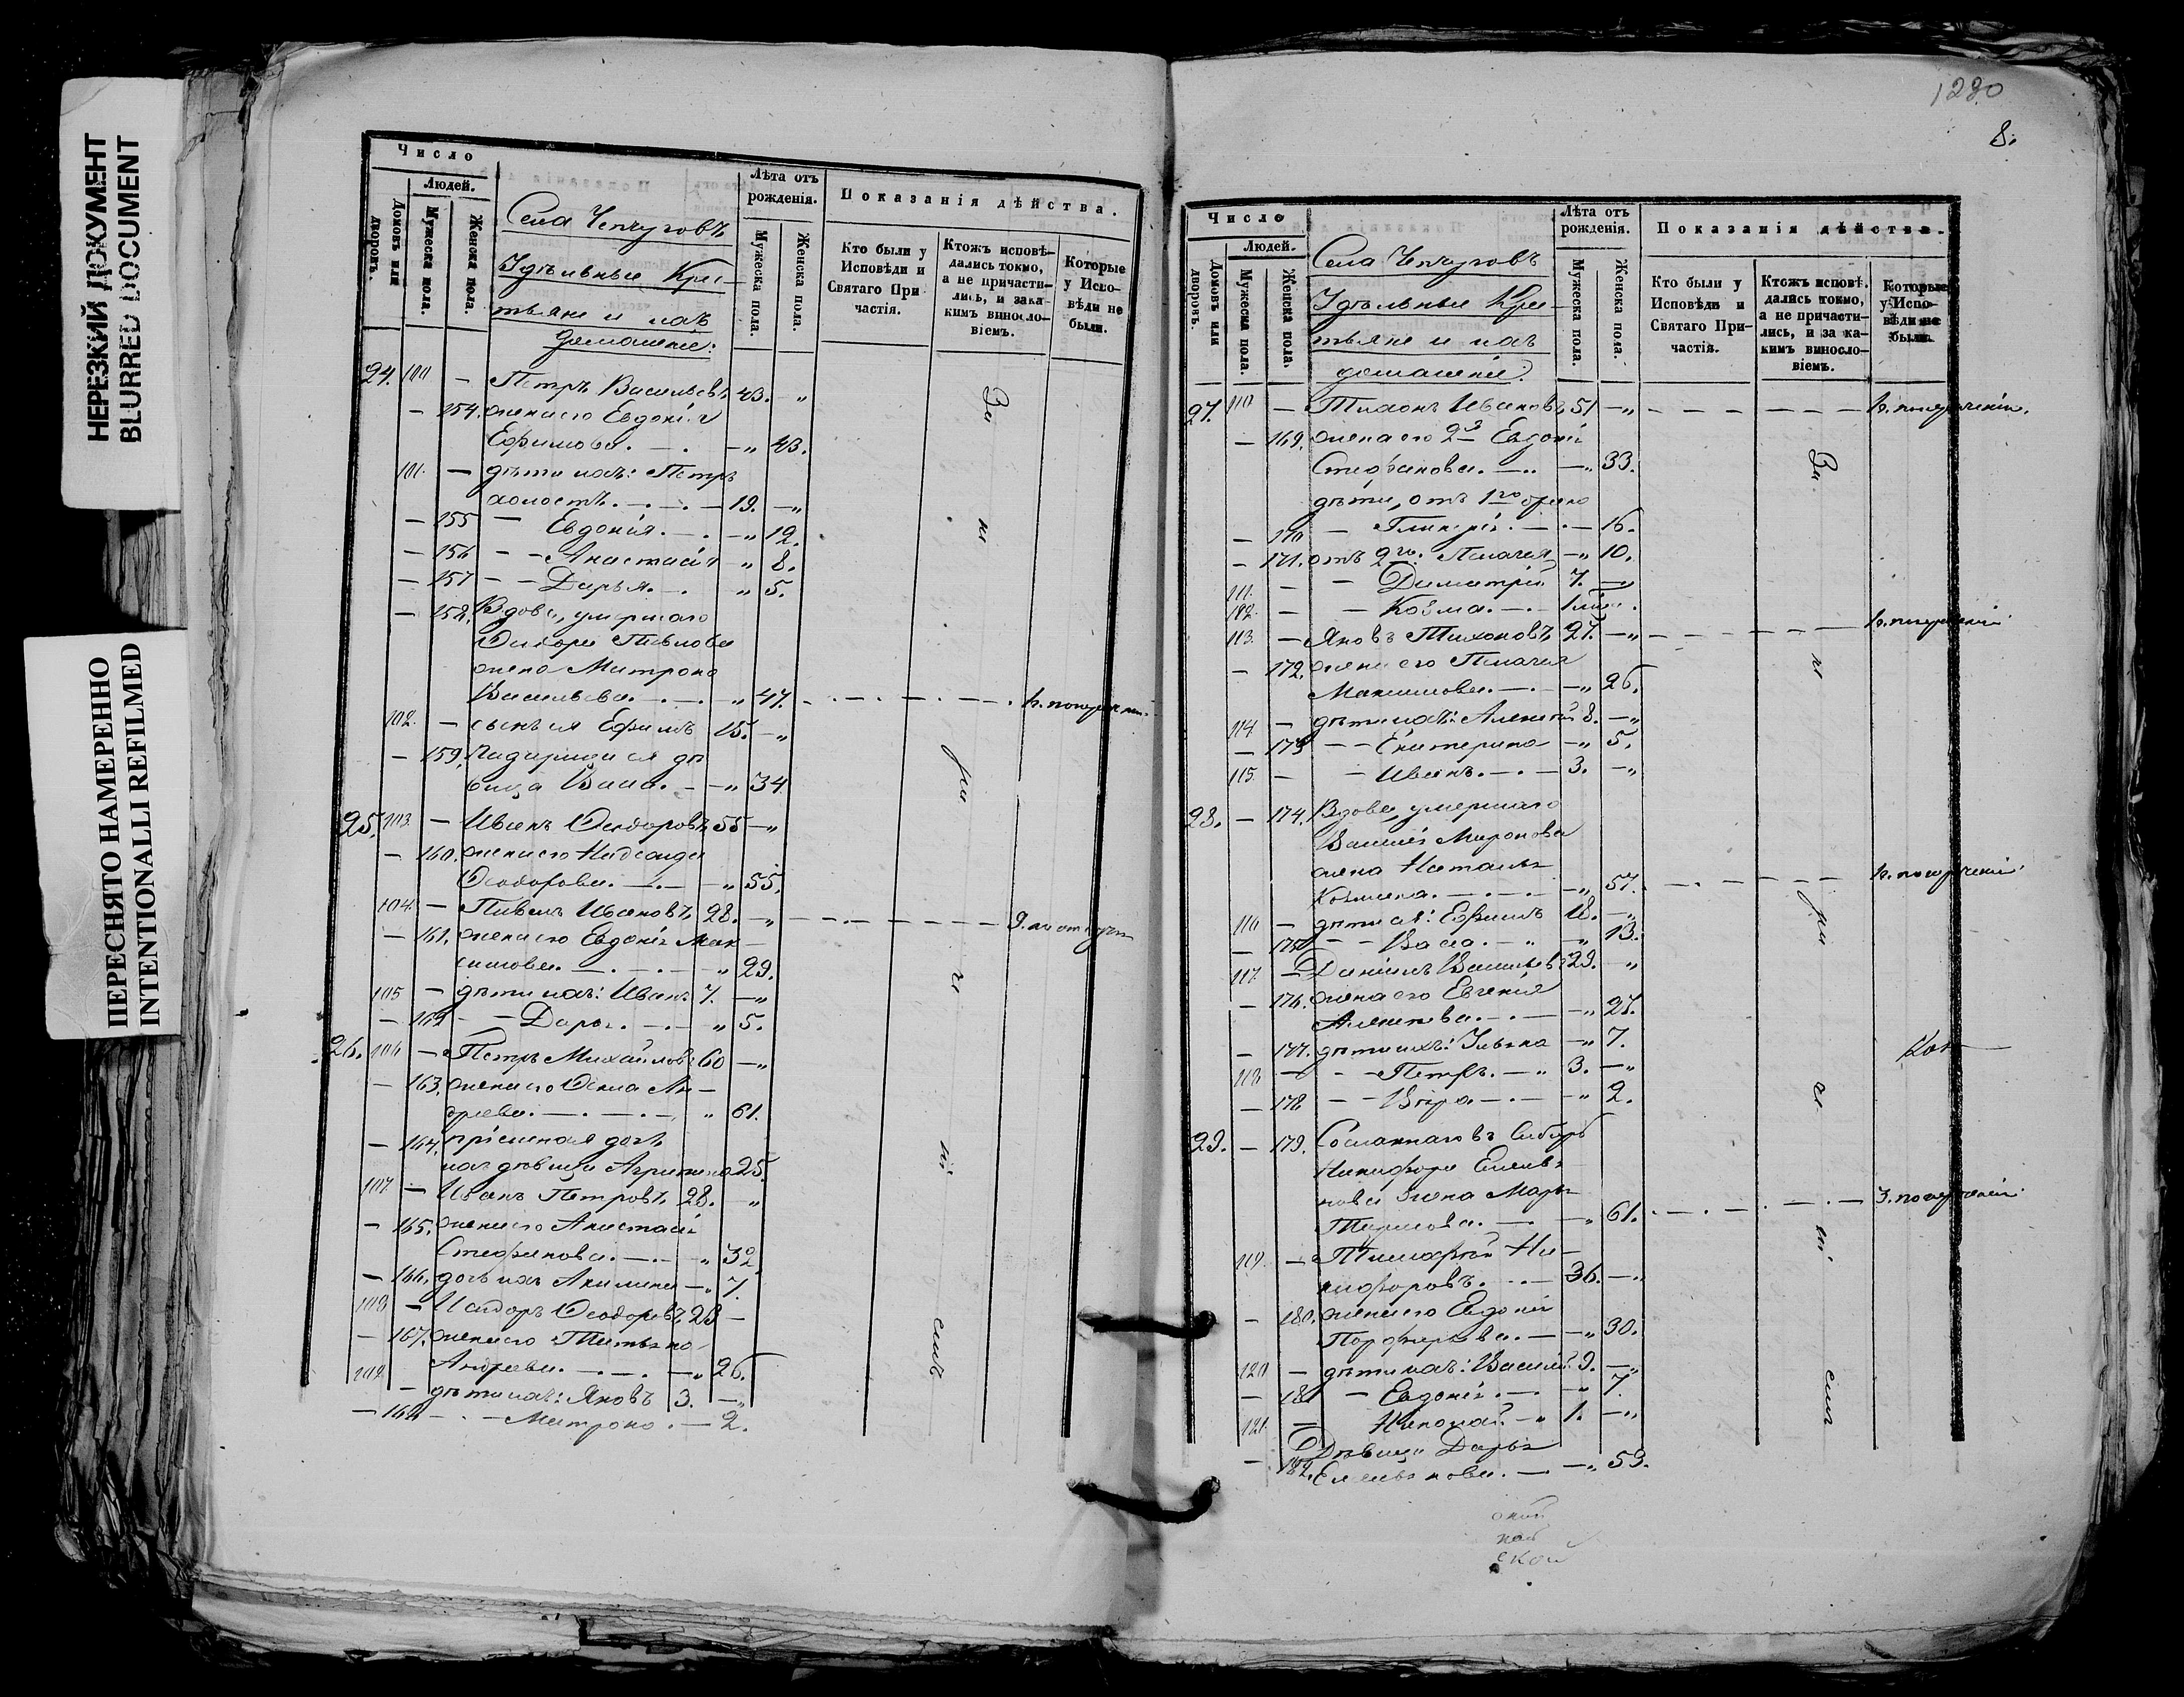 НЕРЕЗКИЙ ДОКУМЕНТ
BLURRED DOCUMENT
ПЕРЕСНЯТО НАМЕРЕННО
INTENTIONALLI REFILMED
Число
Людей.
Домовъ или дворовъ.
Мужеска пола.
Женска пола.
Села Чепчуговъ
Удѣльные Крес-
тьяне и ихъ
домашніе:
Лѣта отъ рожденія.
Мужеска пола.
Женска пола.
Показанія дѣйства.
Кто были у Исповѣди и Святаго При частія.
Ктожъ исповѣ- дались токмо, а не причасти- лись, и зака- кимъ винosло- віемъ.
Которые у Испо- вѣди не были.
24. 100 — Петръ Васильевъ 43. — „
— 154. жена его Евдокія
Ефимова. — . — „ 43.
101. — дѣти ихъ: Петръ
холостъ. — . — . — 19. — „
— 155 — Евдокія. — . — „ 12.
— 156 — — Анастасія — „ 8.
— 157 — — Дарья. — . „ 5.
— 158. Вдова, умершаго
Ѳедора Павлова
жена Матрона
Васильева. — . — . — „ 47.
102. — сынъ ея Ефимъ 15. — „
— 159. Падчерица ея дѣ
вица Васса. — — „ 34
25. 103. — Иванъ Ѳеодоровъ 55 — „
— 160. жена его Надежда
Ѳеодорова. — . — — „ 55.
104. — Павелъ Ивановъ 28. — „
— 161. жена его Евдокія Мак-
симова. — . — . — — „ 29.
105 — дѣти ихъ: Иванъ 7. — „
— 162 — — Дарья. — . — „ 5.
26. 106 — Петръ Михайловъ 60 — „
— 163. жена его Ѳекла Ан-
дреева. — . — . — „ 61.
— 164. пріемная дочь
ихъ дѣвица Агрипина 25.
107. — Иванъ Петровъ 28. — „
— 165. жена его Анастасія
Стефанова. — . — „ 32.
— 166. дочь ихъ Акилина — „ 7.
108 — Исидоръ Ѳеодоровъ 29 —
— 167. жена его Татьяна
Андреева. — . — . — „ 26.
109 — дѣти ихъ: Яковъ 3. — „
— 168 — . — Матрона . — 2.
1280
8.
Число
Людей.
Домовъ или дворовъ.
Мужеска пола.
Женска пола.
Села Чепчуговъ
Удѣльные Крес-
тьяне и ихъ
домашніе.
Лѣта отъ рожденія.
Мужеска пола.
Женска пола.
Показанія дѣйства.
Кто были у Исповѣди и Святаго При- частія.
Ктожъ исповѣ- дались токмо, а не причасти- лись, и за ка- кимъ винosло- віемъ.
Которые у Испо- вѣди не были.
27. 110 — Тихонъ Ивановъ 51 — „
— 169. жена его 2я Евдокія
Стефанова. — .. — „ 33.
дѣти, отъ 1го брака
— 170 — Гликерія. — . — 16.
— 171. отъ 2го. Пелагея — „ 10.
111. — — Димитрій 7. — „
112. — — Козма. — . —
113. — Яковъ Тихоновъ 27. — „
— 172. жена его Пелагея
Максимова. — . — „ 26.
114 — дѣти ихъ: Алексѣй 8. — „
— 173 — — Екатерина — „ 5.
115. — — Иванъ. — . — 3. — „
28. — 174. Вдова, умершаго
Василія Миронова
жена Наталья
Козмина. — . — . — — „ 57.
116 — дѣти ея: Ефимъ 18. — „
— 175 — — Васса. — „ — „ 13.
117. — Даніилъ Васильевъ 29. „
— 176. жена его Евгенія
Алексѣева. — . — — „ 27.
— 177. дѣти ихъ: Ульяна — „ 7.
118 — — — Петръ. — „ 3. — „
— 178 — — Вѣра — . — — „ 2.
29. — 179. Сосланнаго въ Сибирь
Никифора Емелья-
нова жена Марья
— „ 61.
119. — Тимофей Ни-
кифоровъ. . . — 36. — „
— 180. жена его Евдокія
Порфирьева. — — „ 30.
120 — дѣти ихъ: Василій 9. — „
— 181 — Евдокія . — . — „ 7.
121. — Николай — „ 1. — „
— 182. Дѣвица Дарья
Емельянова. — — „ 59.